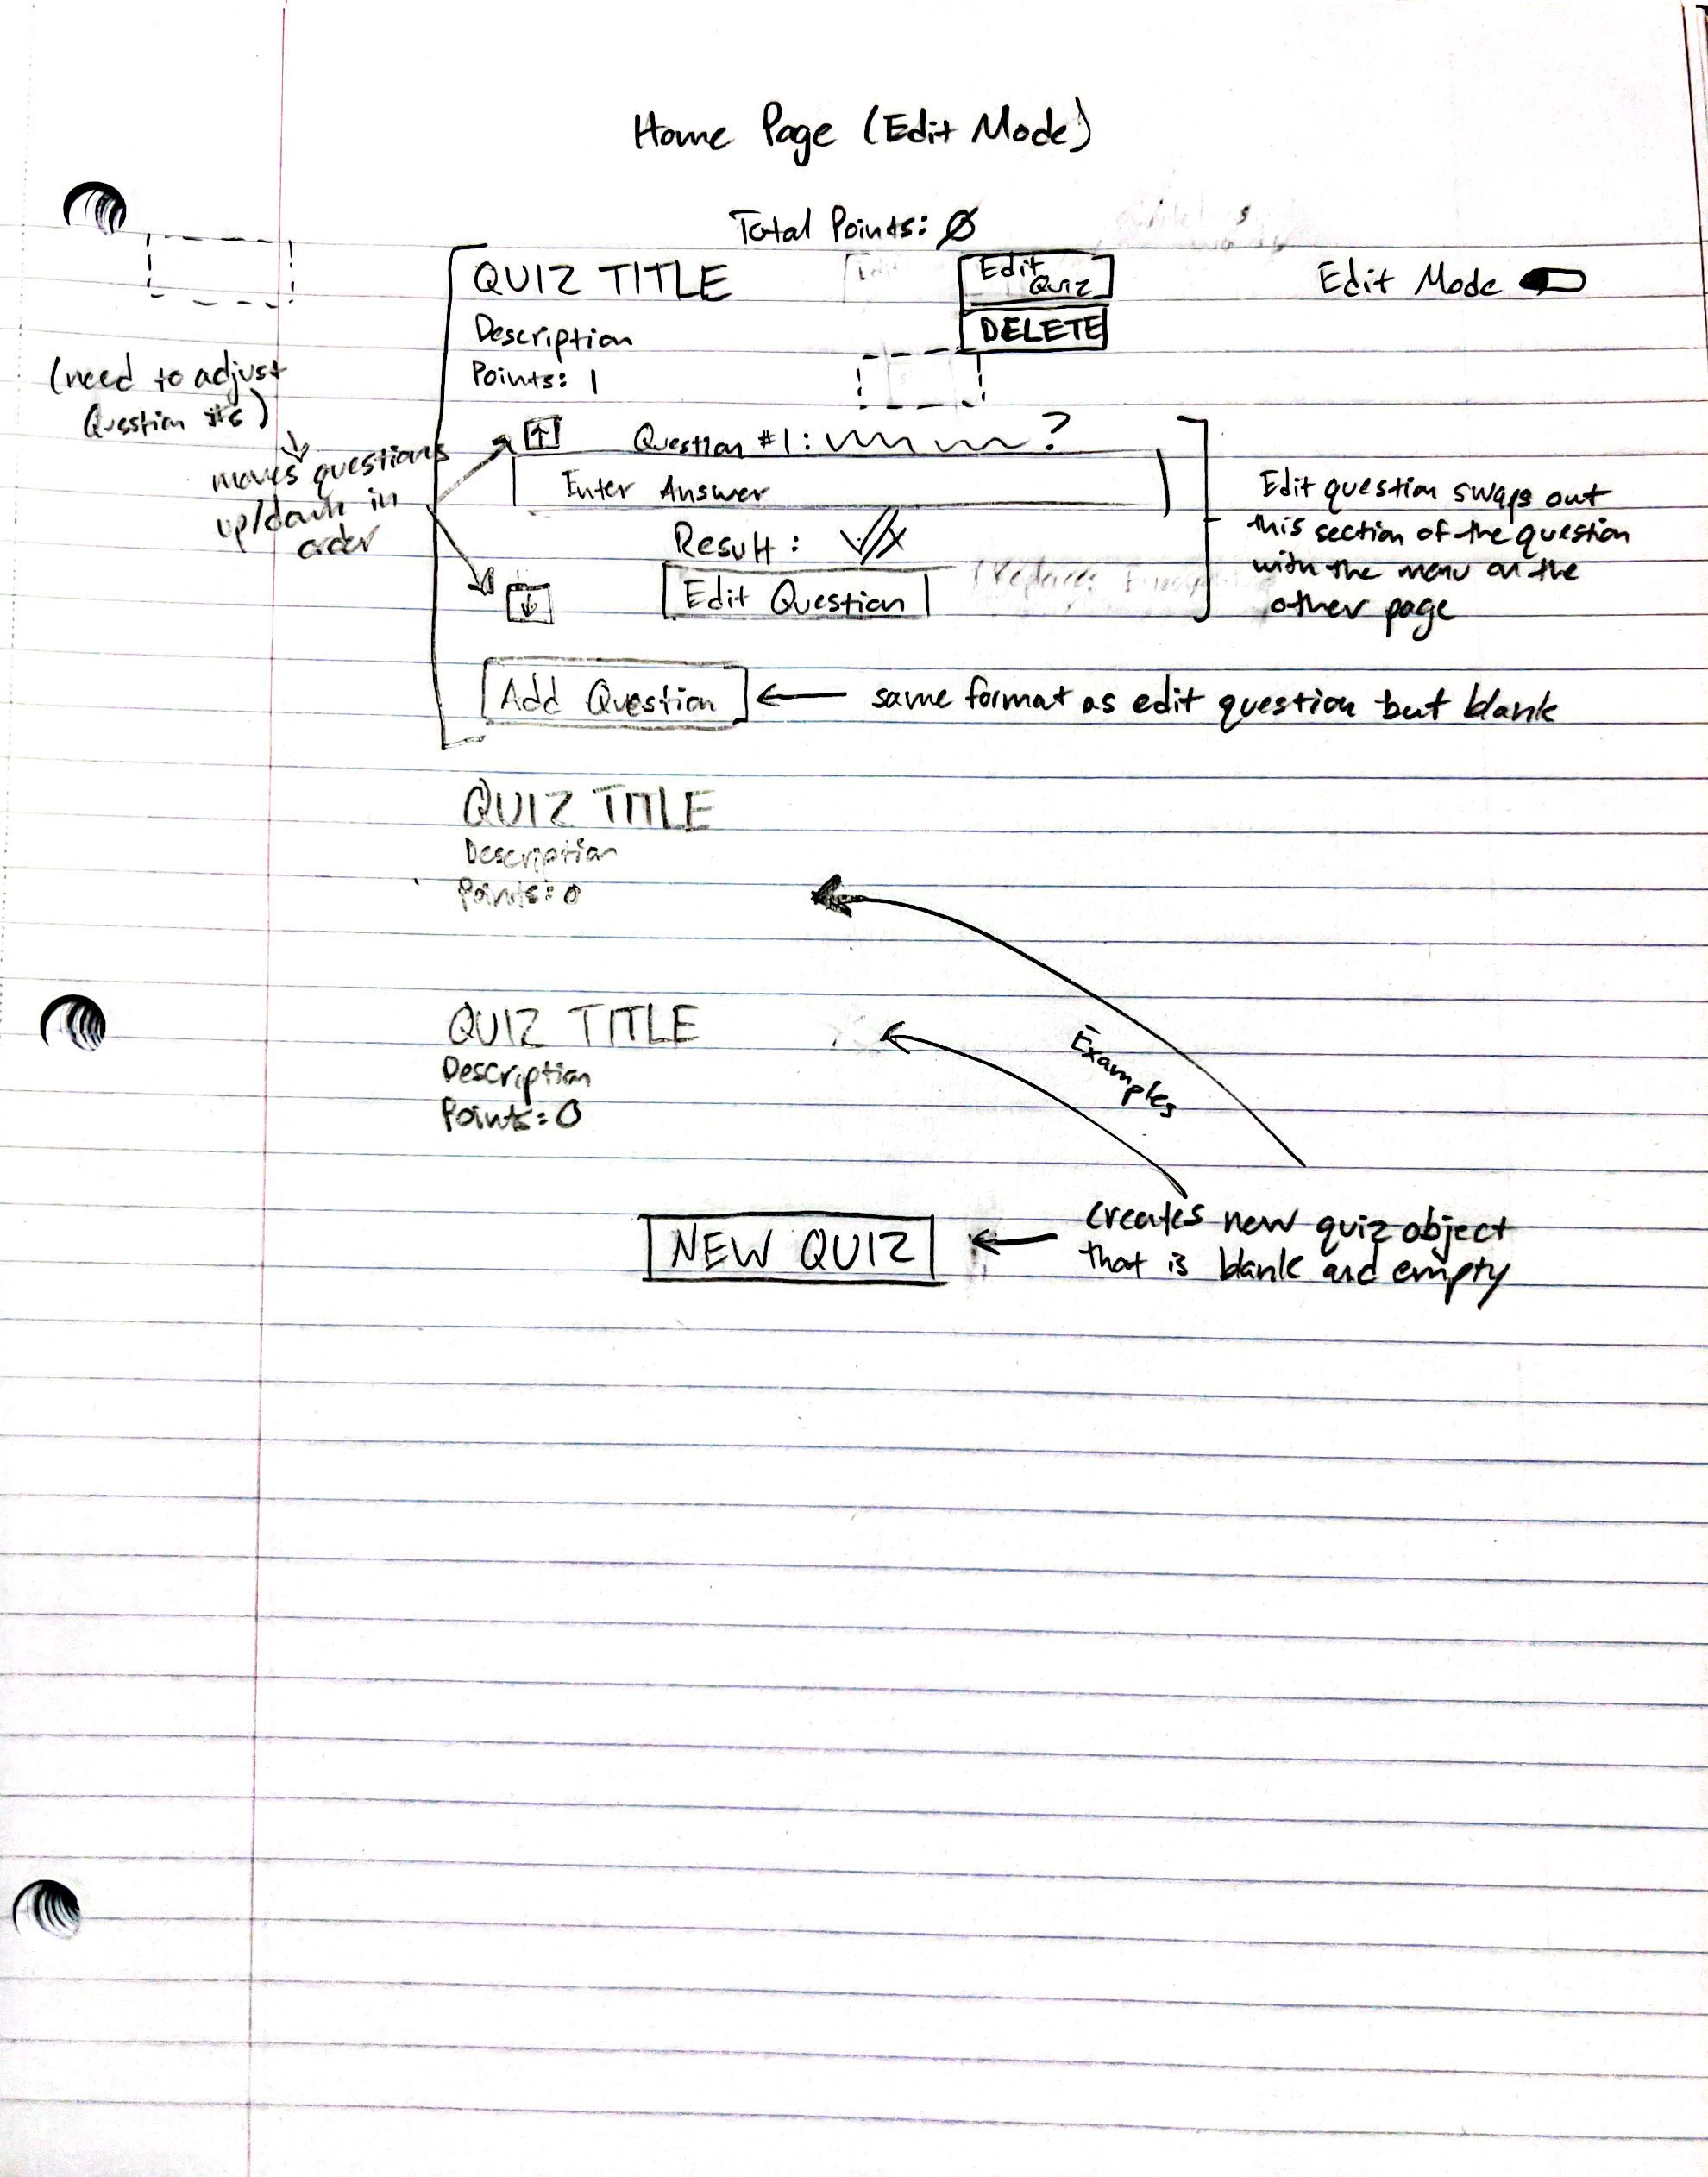 Home Page (Edit Mode)
Total Points: Ø
QUIZ TITLE
Edit
Quiz
Edit Mode
Description
DELETE
Points: 1
(need to adjust
Question #s)
moves questions
up/down in
order
↑
Question #1: ?
Enter Answer
Result: ✓/x
↓
Edit Question
Edit question swaps out
this section of the question
with the menu on the
other page
Add Question
← same format as edit question but blank
QUIZ TITLE
Description
Points: 0
QUIZ TITLE
Description
Points: 0
Examples
NEW QUIZ
← creates new quiz object
that is blank and empty